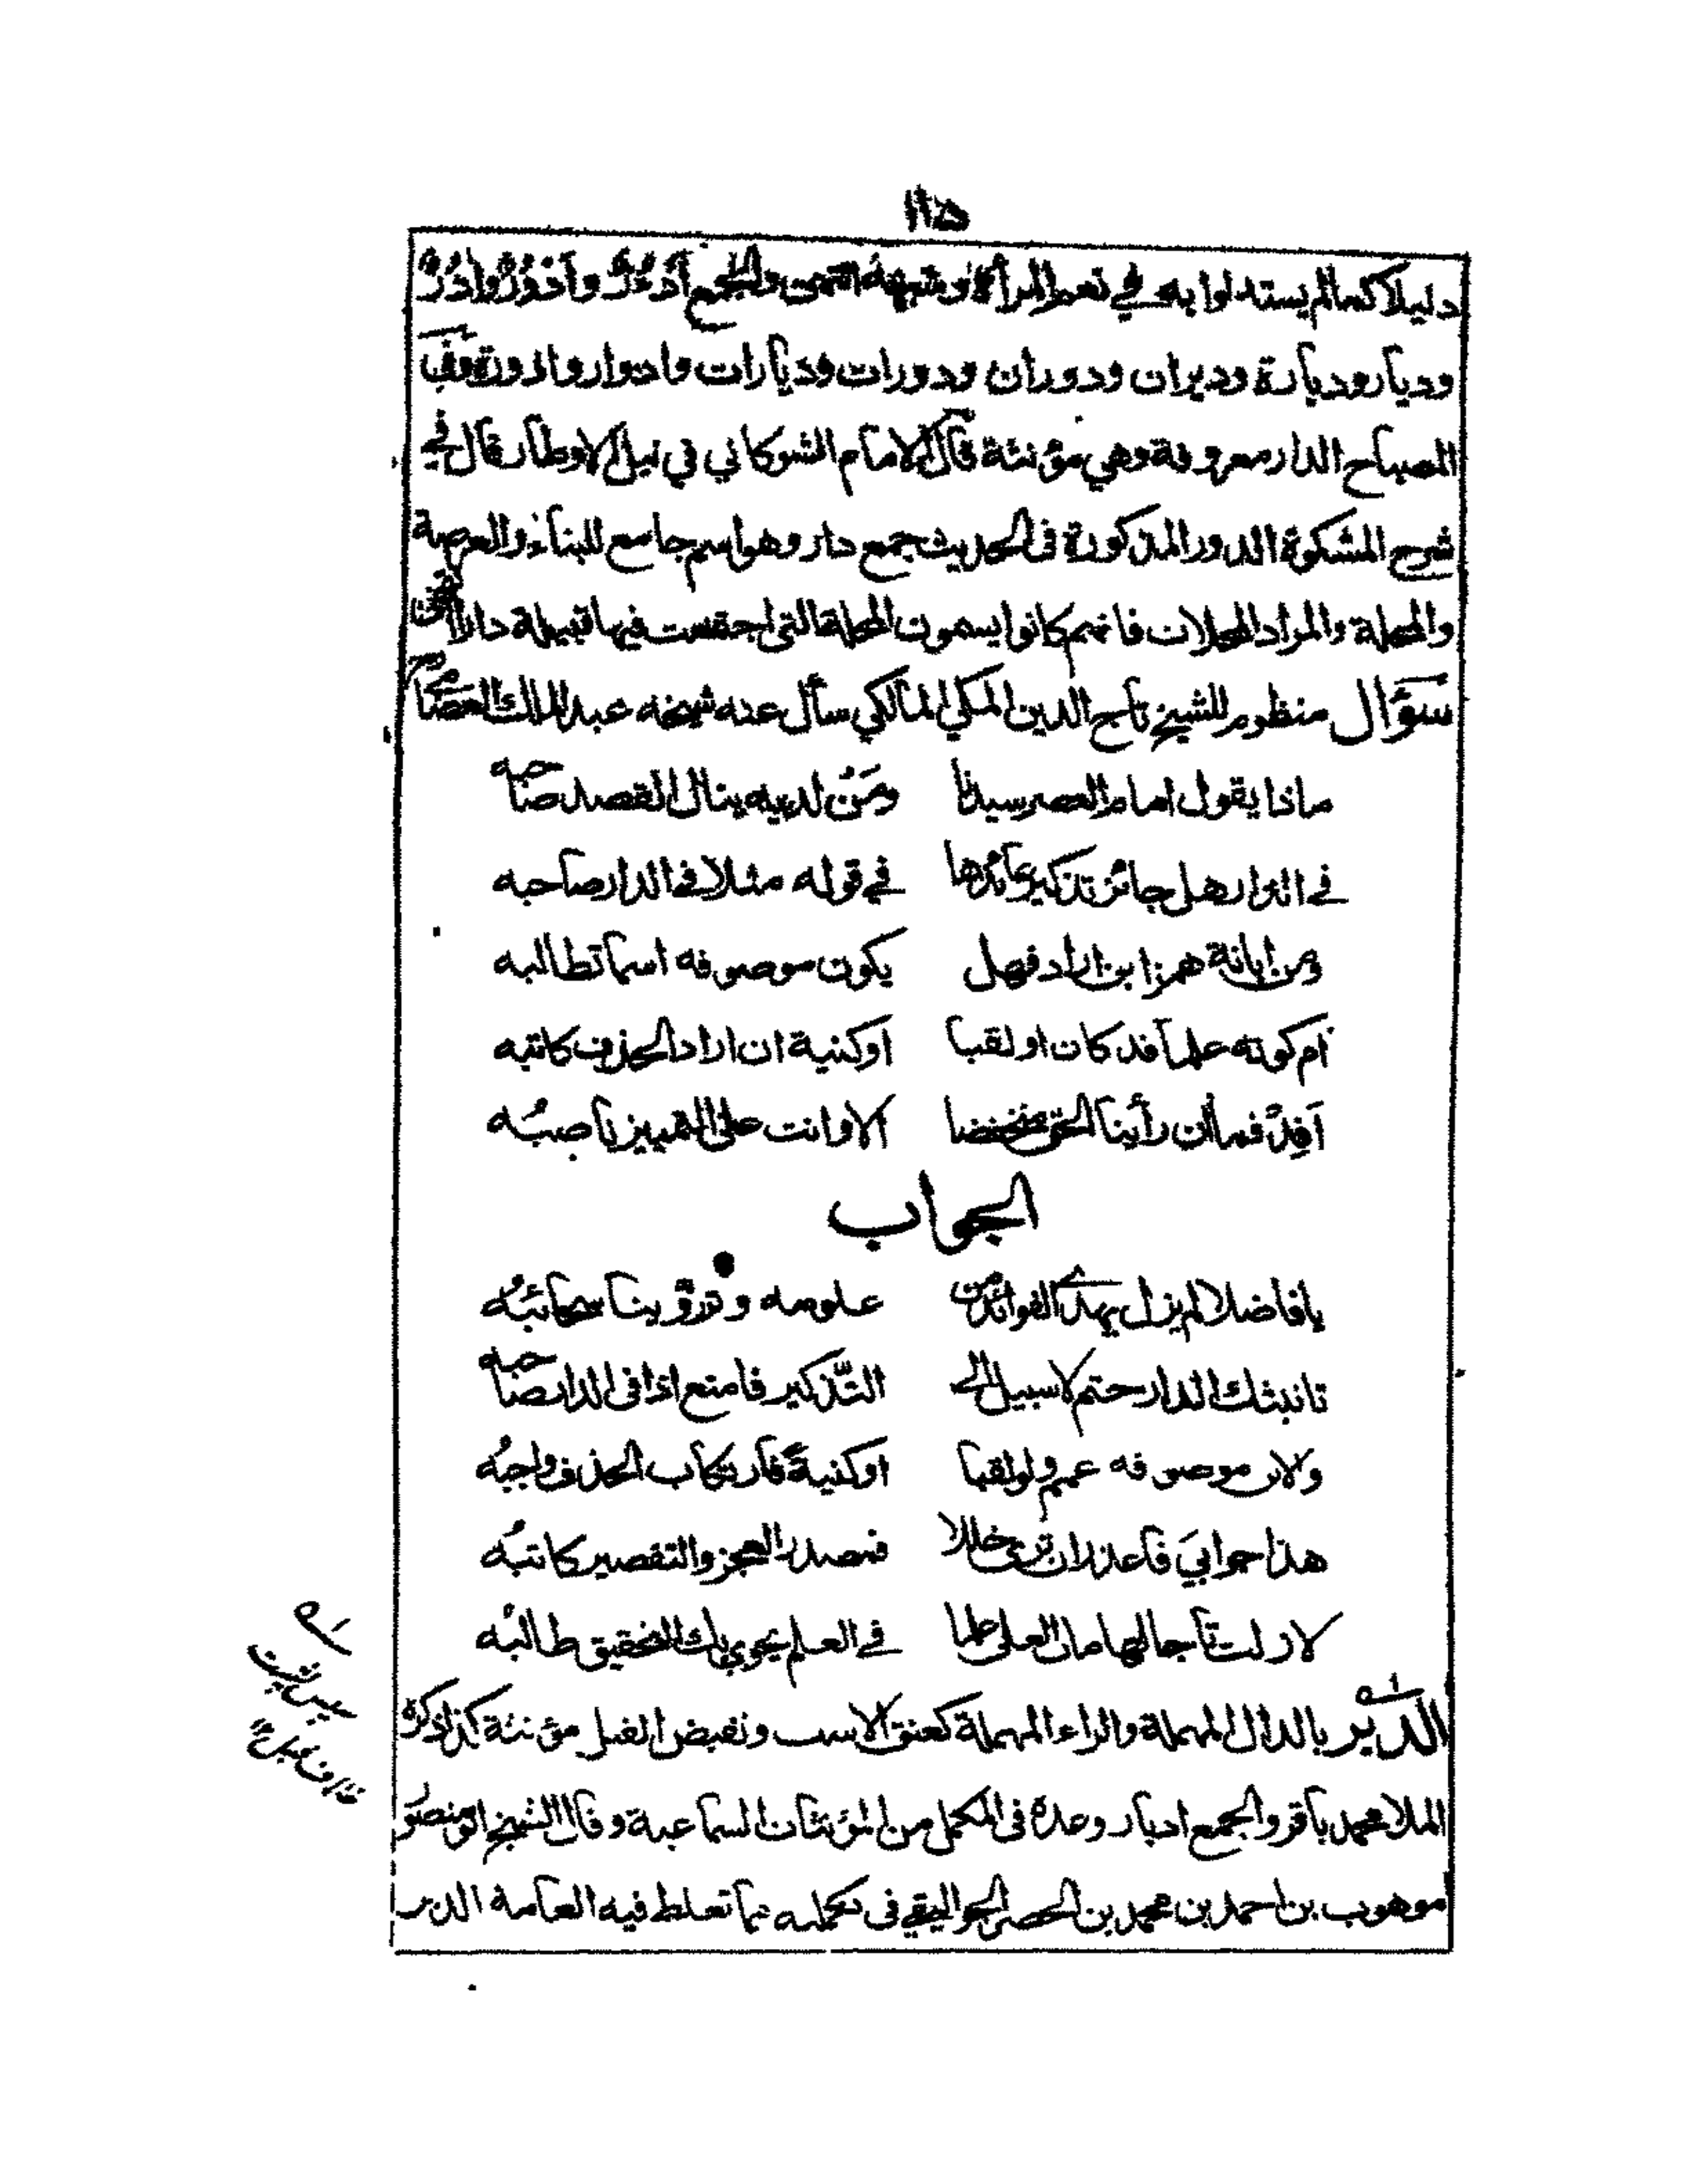 ١١٥
دليلا كما لم يستدلوا به في نعم المرأة وشبهه انتهى والجمع أدؤر وآدر وأدور
وديار وديارة وديران ودوران ودورات وديارات وادوار وادورة وفي
المصباح الدار معروفة وهي مؤنثة قال الامام الشوكاني في نيل الاوطار قال في
شرح المشكوة الدور المذكورة في الحديث جمع دار وهو اسم جامع للبناء والعرصة
والمحلة والمراد المحلات فانهم كانوا يسمون المحلة التي اجتمعت فيها قبيلة دارا
سؤال منظوم للشيخ تاج الدين المكي المالكي سأل عنه شيخه عبد الملك العصامي
ماذا يقول امام العصر سيدنا ومن لديه ينال القصد صاحبه
في الدار هل جائز تذكير عائدها في قوله مثلا في الدار صاحبه
ومن ابانة همز ابن اراد فهل يكون موصوفه اسما تطالبه
أم كونه علما قد كان او لقبا او كنية ان اراد الحذف كاتبه
أفد فما ان رأينا الحق منخفضا الا وانت على التمييز ناصبه
الجواب
يا فاضلا لم يزل يهدي الفوائد من علومه وتروينا سحائبه
تانيثك الدار حتم لا سبيل الى التذكير فامنع اذا في الدار صاحبه
ولابن موصوفه عمم ولو لقبا او كنية فارتكاب الحذف واجبه
هذا جوابي فاعذر ان ترى خللا فمصدر العجز والتقصير كاتبه
لا زلت تاجا لهامات العلى علما في العلم يحوي بك التحقيق طالبه
الدبر بالدال المهملة والراء المهملة كعنق الاست ونقيض القبل مؤنثة كذا ذكره
الملا محمد باقر والجمع ادبار وعده في المكمل من المؤنثات السماعية وقال الشيخ ابو منصور
موهوب بن احمد بن محمد بن الخضر الجواليقي في تكملته فيما تغلط فيه العامة الدبر